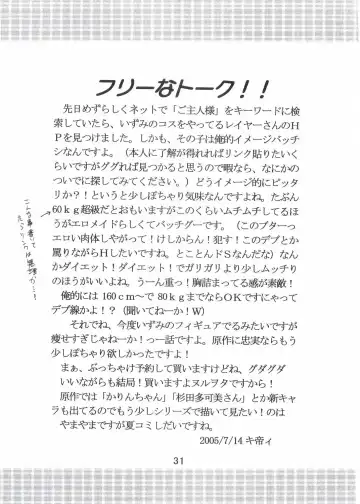 フリーなトーク！！
先日めずらしくネットで「ご主人様」をキーワードに検
索していたら、いずみのコスをやってるレイヤーさんのH
Pを見つけました。しかも、その子は俺的イメージバッチ
シなんですよ。（本人に了解が得れればリンク貼りたいく
らいですがググれば見つかると思うので暇なら、なにかの
ついでに探してみてください。）どうイメージ的にピッタ
リか？！というと少しぽちゃり気味なんですよね。たぶん
60kg超級だとおもいますがこのくらいムチムチしてるほ
うがエロメイドらしくてバッチグーです。（このブターっ
エロい肉体しやがって！けしからん！犯す！このデブとか
罵りながらHしたいですね。とことんドSなだなん）なん
かダイエット！ダイエット！でガリガリより少しムッチり
のほうがいいよねえ。うーん重っ！胸詰まってる感が素敵！
俺的には 160cm～で 80kgまでならOKですにゃって
デブ線かよ！？（聞いてねーか！W）
それでね、今度いずみのフィギュアでるみたいですが
痩せすぎじゃねーか！っー話ですよ。原作に忠実ならもう
少しぽちゃり欲しかったですよ！
まぁ、ぶっちゃけ予約して買いますけどね、グダグダ
いいながらも結局！買いますよヌルヲタですから！
原作では「かりんちゃん」「杉田多可美さん」とか新キャ
ラも出てるのでもう少しシリーズで描いて見たい！のは
やまやまですが夏コミしだいですね。
2005/7/14 キ帝ィ
31